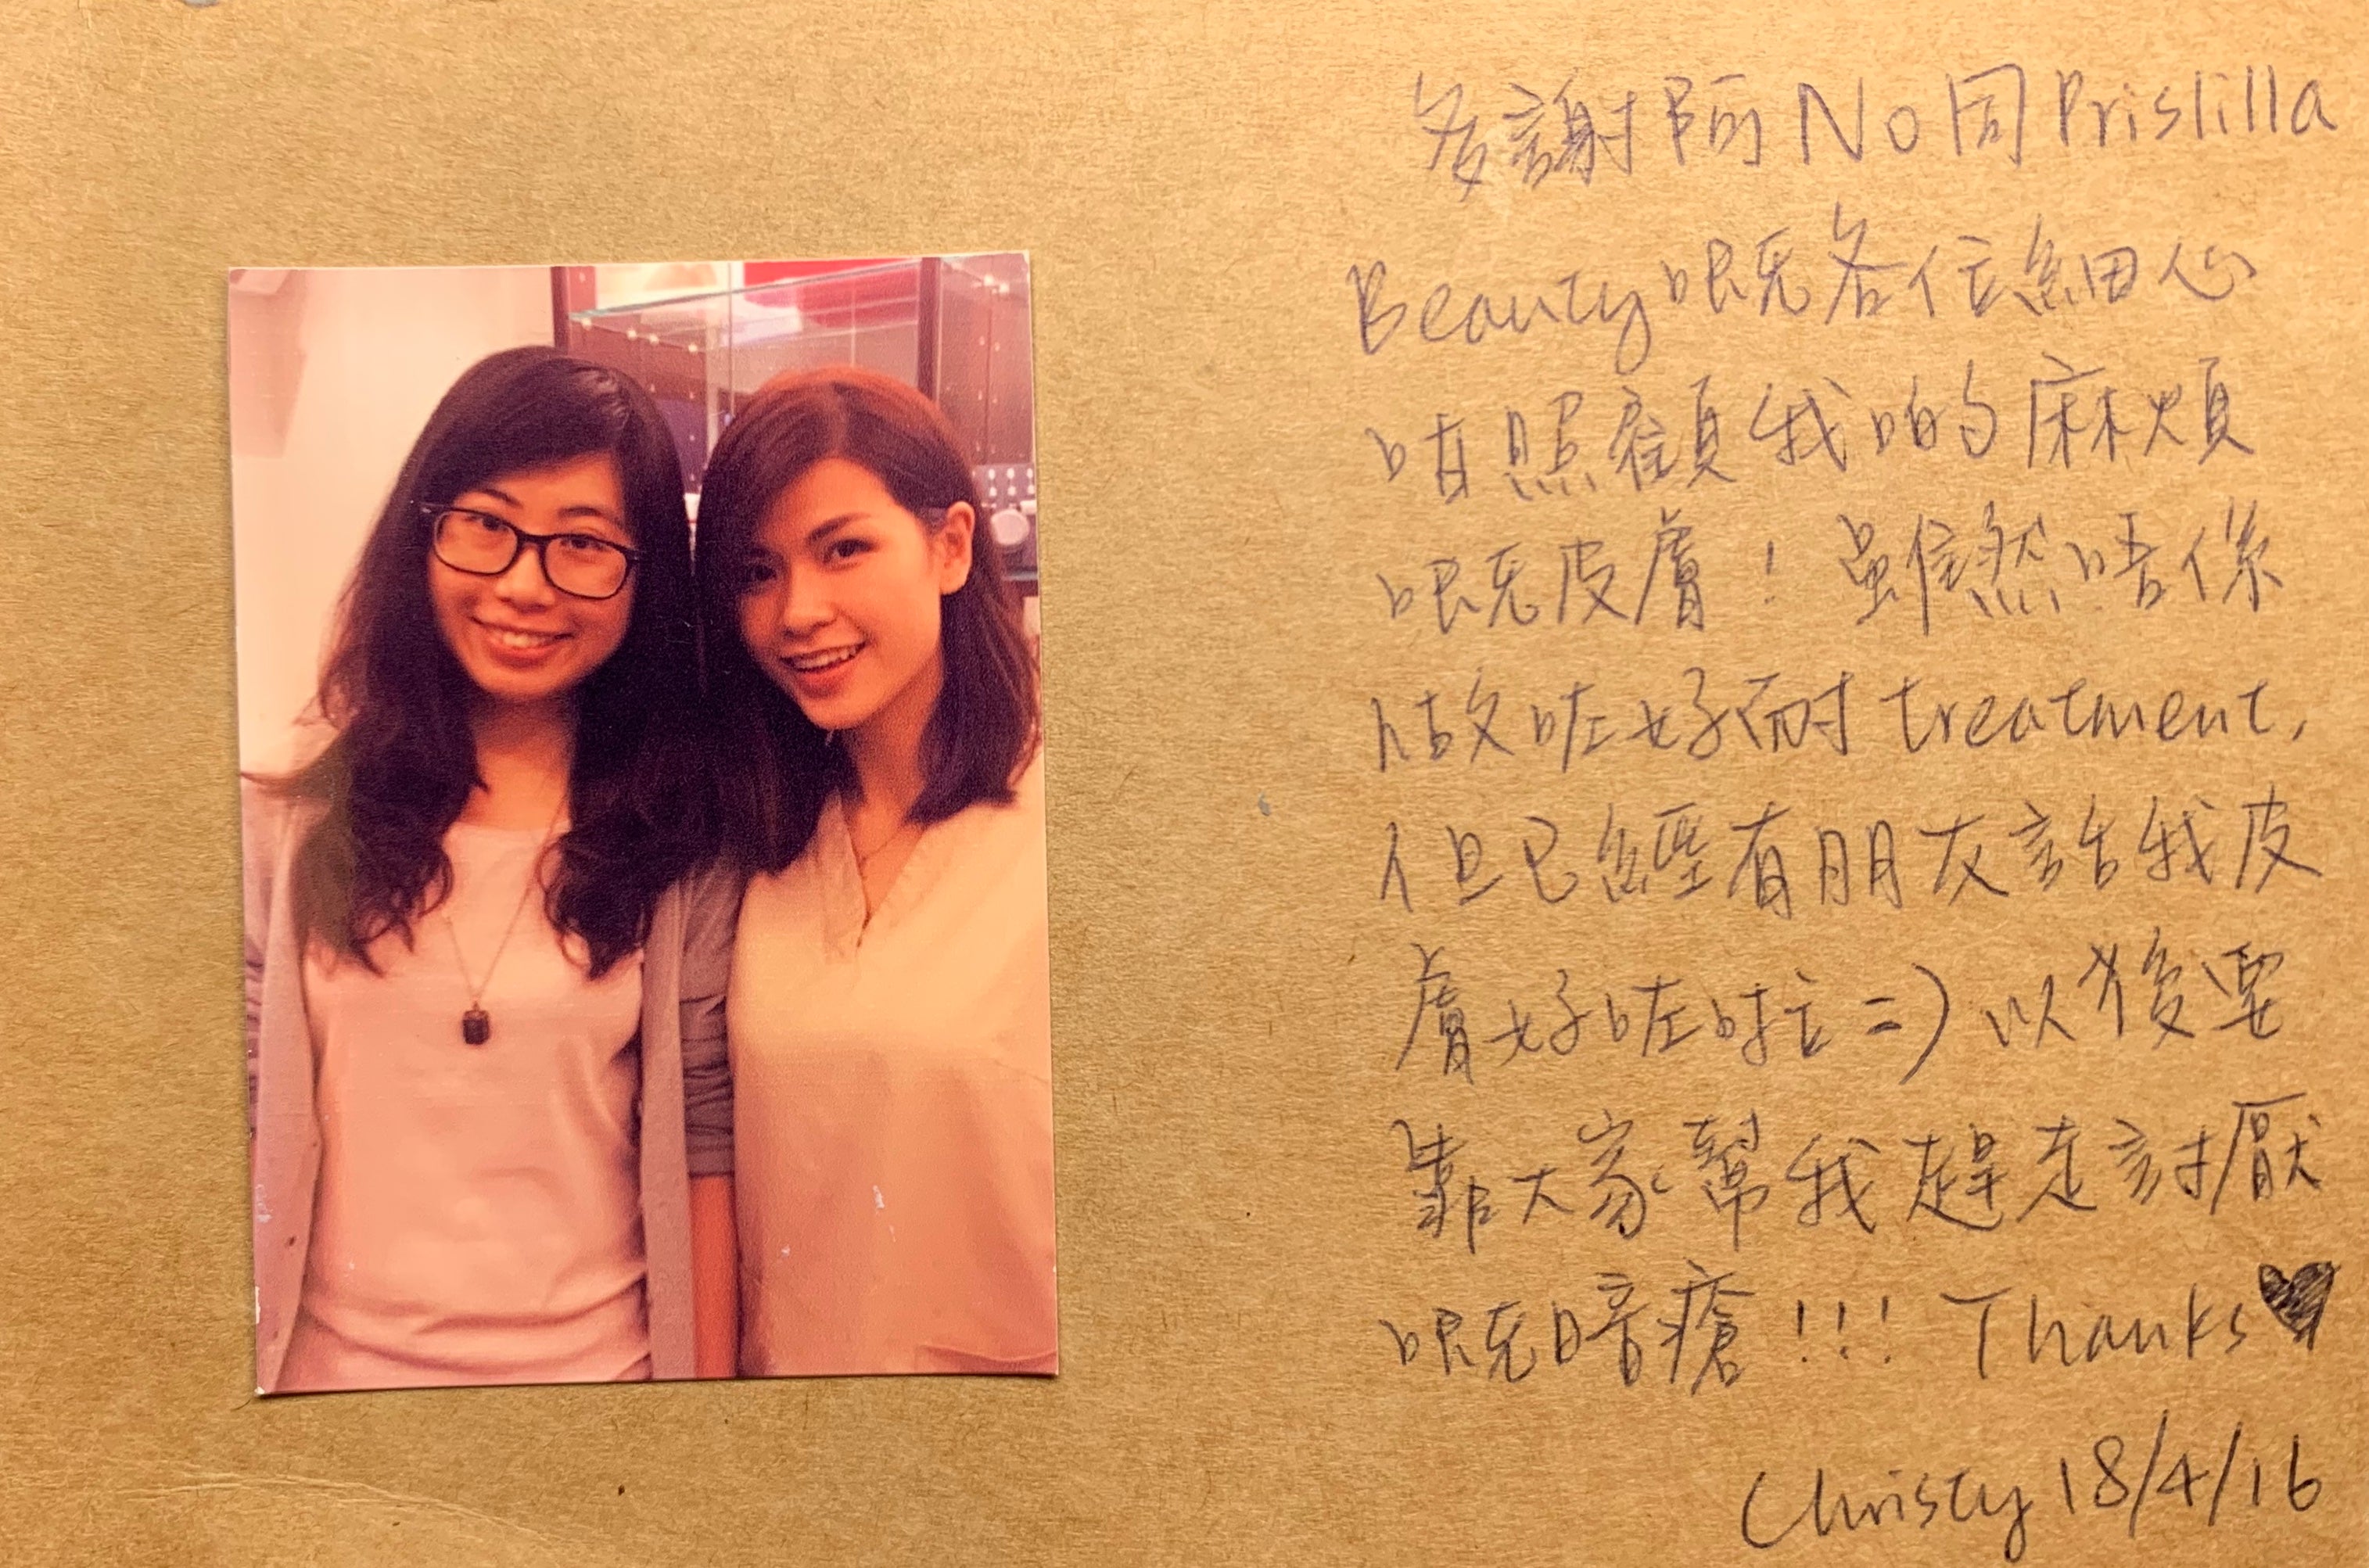 多謝阿No同Prislilla
Beauty嘅各位細心
咁照顧我啲麻煩
嘅皮膚！雖然唔係
做咗好耐treatment,
但已經有朋友話我皮
膚好咗啦=) 以後要
靠大家幫我趕走討厭
嘅暗瘡!!! Thanks♥
Christy 18/4/16